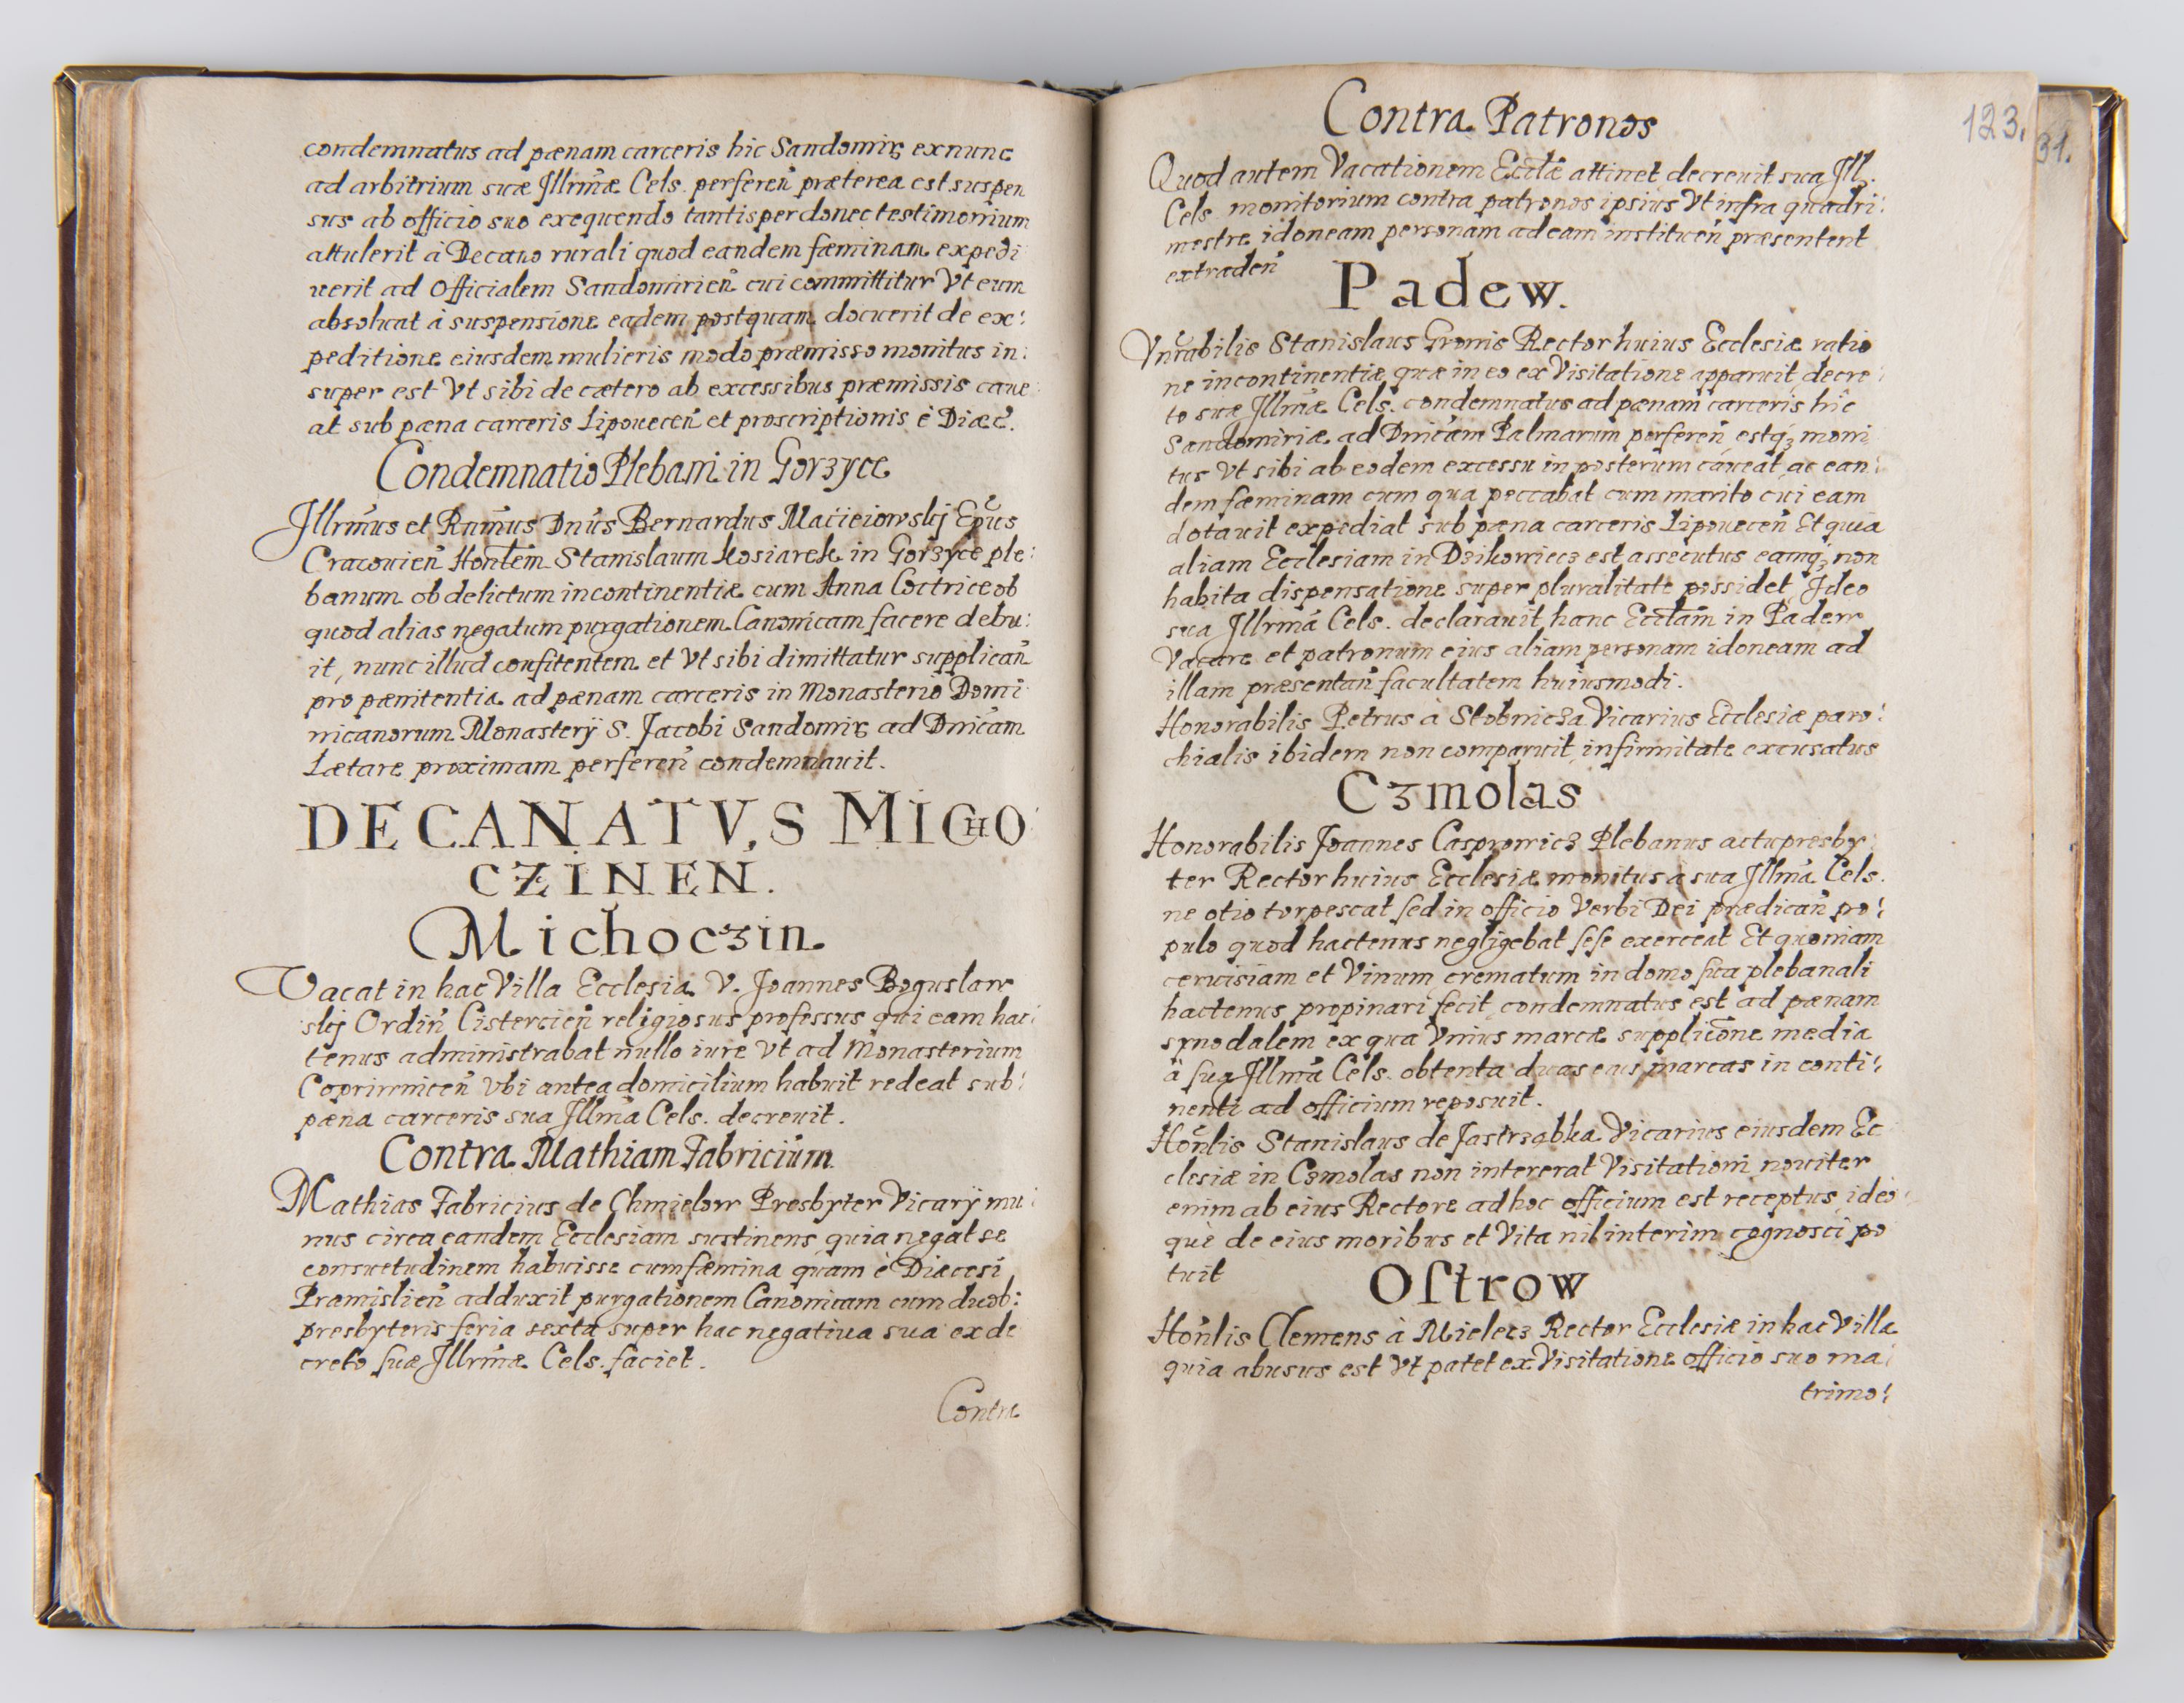 condemnatus ad pænam carceris hic Sandomirę exnunc
ad arbitrium suæ Jllrm̃æ Cels. perfereñ præterea est suspen
sus ab officio suo exequendo tantisper donec testimonium
attulerit à Decano rurali quod eandem fæminam expedi
uerit ad Officialem Sandomirieñ cui committitur Vt eum
absoluat à suspensione eadem postquam docuerit de ex:
peditione eiusdem mulieris modo præmisso monitus in:
super est Vt sibi de cætero ab excessibus præmissis caue
at sub pæna carceris Lipoueceñ et proscriptionis è Diæc̃.
Condemnatio Plebani in Gorzyce
Jllrm̃us et Rn̄m̃us Dnũs Bernardus Macieiowskj Ep̃us
Cracouieñ Hon̄lem Stanislaum Kosiarek in Gorzyce ple:
banum ob delictum incontinentiæ cum Anna Coctrice ob
quod alias negatum purgationem Canonicam facere debu:
it, nunc illud confitentem et Vt sibi dimittatur supplicañ
pro pænitentia ad pænam carceris in Monasterio Domi
nicanorum Monasterÿ S. Jacobi Sandomirę ad Dnĩcam
Lætare proximam perfereñ condemnauit.
DECANATVS MICHO
CZINEN.
Michoczin
Vacat in hac Villa Ecclesia V. Joannes Boguslaw
skj Ordiñ Cistercieñ religiosus professus qui eam hac:
tenus administrabat nullo iure Vt ad Monasterium
Copriwniceñ Vbi antea domicilium habuit redeat sub:
pæna carceris sua Jllm̃a Cels. decreuit.
Contra Mathiam Fabricium
Mathias Fabricius de Chmielow Presbyter Vicarÿ mu:
nus circa eandem Ecclesiam sustinens quia negat se
consuetudinem habuisse cum fæmina quam è Diæcesi
Præmislieñ adduxit purgationem Canonicam cum duob:
presbyteris feria sexta super hac negatiua sua ex de
creto suæ Jllrm̃æ Cels. faciet.
Contra
123.
31.
Contra Patronos
Quod autem Vacationem Eccłæ attinet decreuit sua Jll.
Cels. monitorium contra patronos ipsius Vt infra quadri:
mestre idoneam personam ad eam institueñ præsentent
extradeñ
Padew.
Vnr̃abilis Stanislaus Gronis Rector huius Ecclesiæ ratio
ne incontinentiæ quæ in eo ex Visitatione apparuit decre:
to suæ Jllrm̃æ Cels. condemnatus ad pænam carceris hic
Sandomiriæ ad Dnĩcam Palmarum perfereñ estq3 moni
tus Vt sibi ab eodem excessu in posterum caueat ac ean:
dem fæminam cum qua peccabat cum marito cui eam
dotauit expediat sub pæna carceris Lipoueceñ Et quia
aliam Ecclesiam in Dzikowiecz est assecutus eamq3 non
habita dispensatione super pluralitate possidet, Jdeo
sua Jllrm̃a Cels. declarauit hanc Eccłam in Padew
Vacare et patronum eius aliam personam idoneam ad
illam præsentañ facultatem huiusmodi.
Honorabilis Petrus à Stobnicza Vicarius Ecclesiæ paro:
chialis ibidem non comparuit, infirmitate excusatus
Czmolas
Honorabilis Joannes Casprowicz Plebanus actu presby:
ter Rector huius Ecclesiæ monitus à sua Jllm̃a Cels.
ne otio torpescat sed in officio Verbi Dei prædicañ po:
pulo quod hactenus negligebat sese exerceat Et quoniam
ceruisiam et Vinum crematum in domo sua plebanali
hactenus propinari fecit condemnatus est ad pænam
synodalem ex qua Vnius marcæ supplicõne media
à sua Jllm̃a Cels. obtenta duas eas marcas in conti:
nenti ad officium reposuit.
Hon̄lis Stanislaus de Jastrząbka Vicarius eiusdem Ec
clesiæ in Czmolas non intererat Visitationi nouiter
enim ab eius Rectore ad hoc officium est receptus ideo
que de eius moribus et Vita nil interim cognosci po
tuit
Ostrow
Hon̄lis Clemens à Mielecz Rector Ecclesiæ in hac Villa
quia abusus est Vt patet ex Visitatione officio suo ma:
trimo: